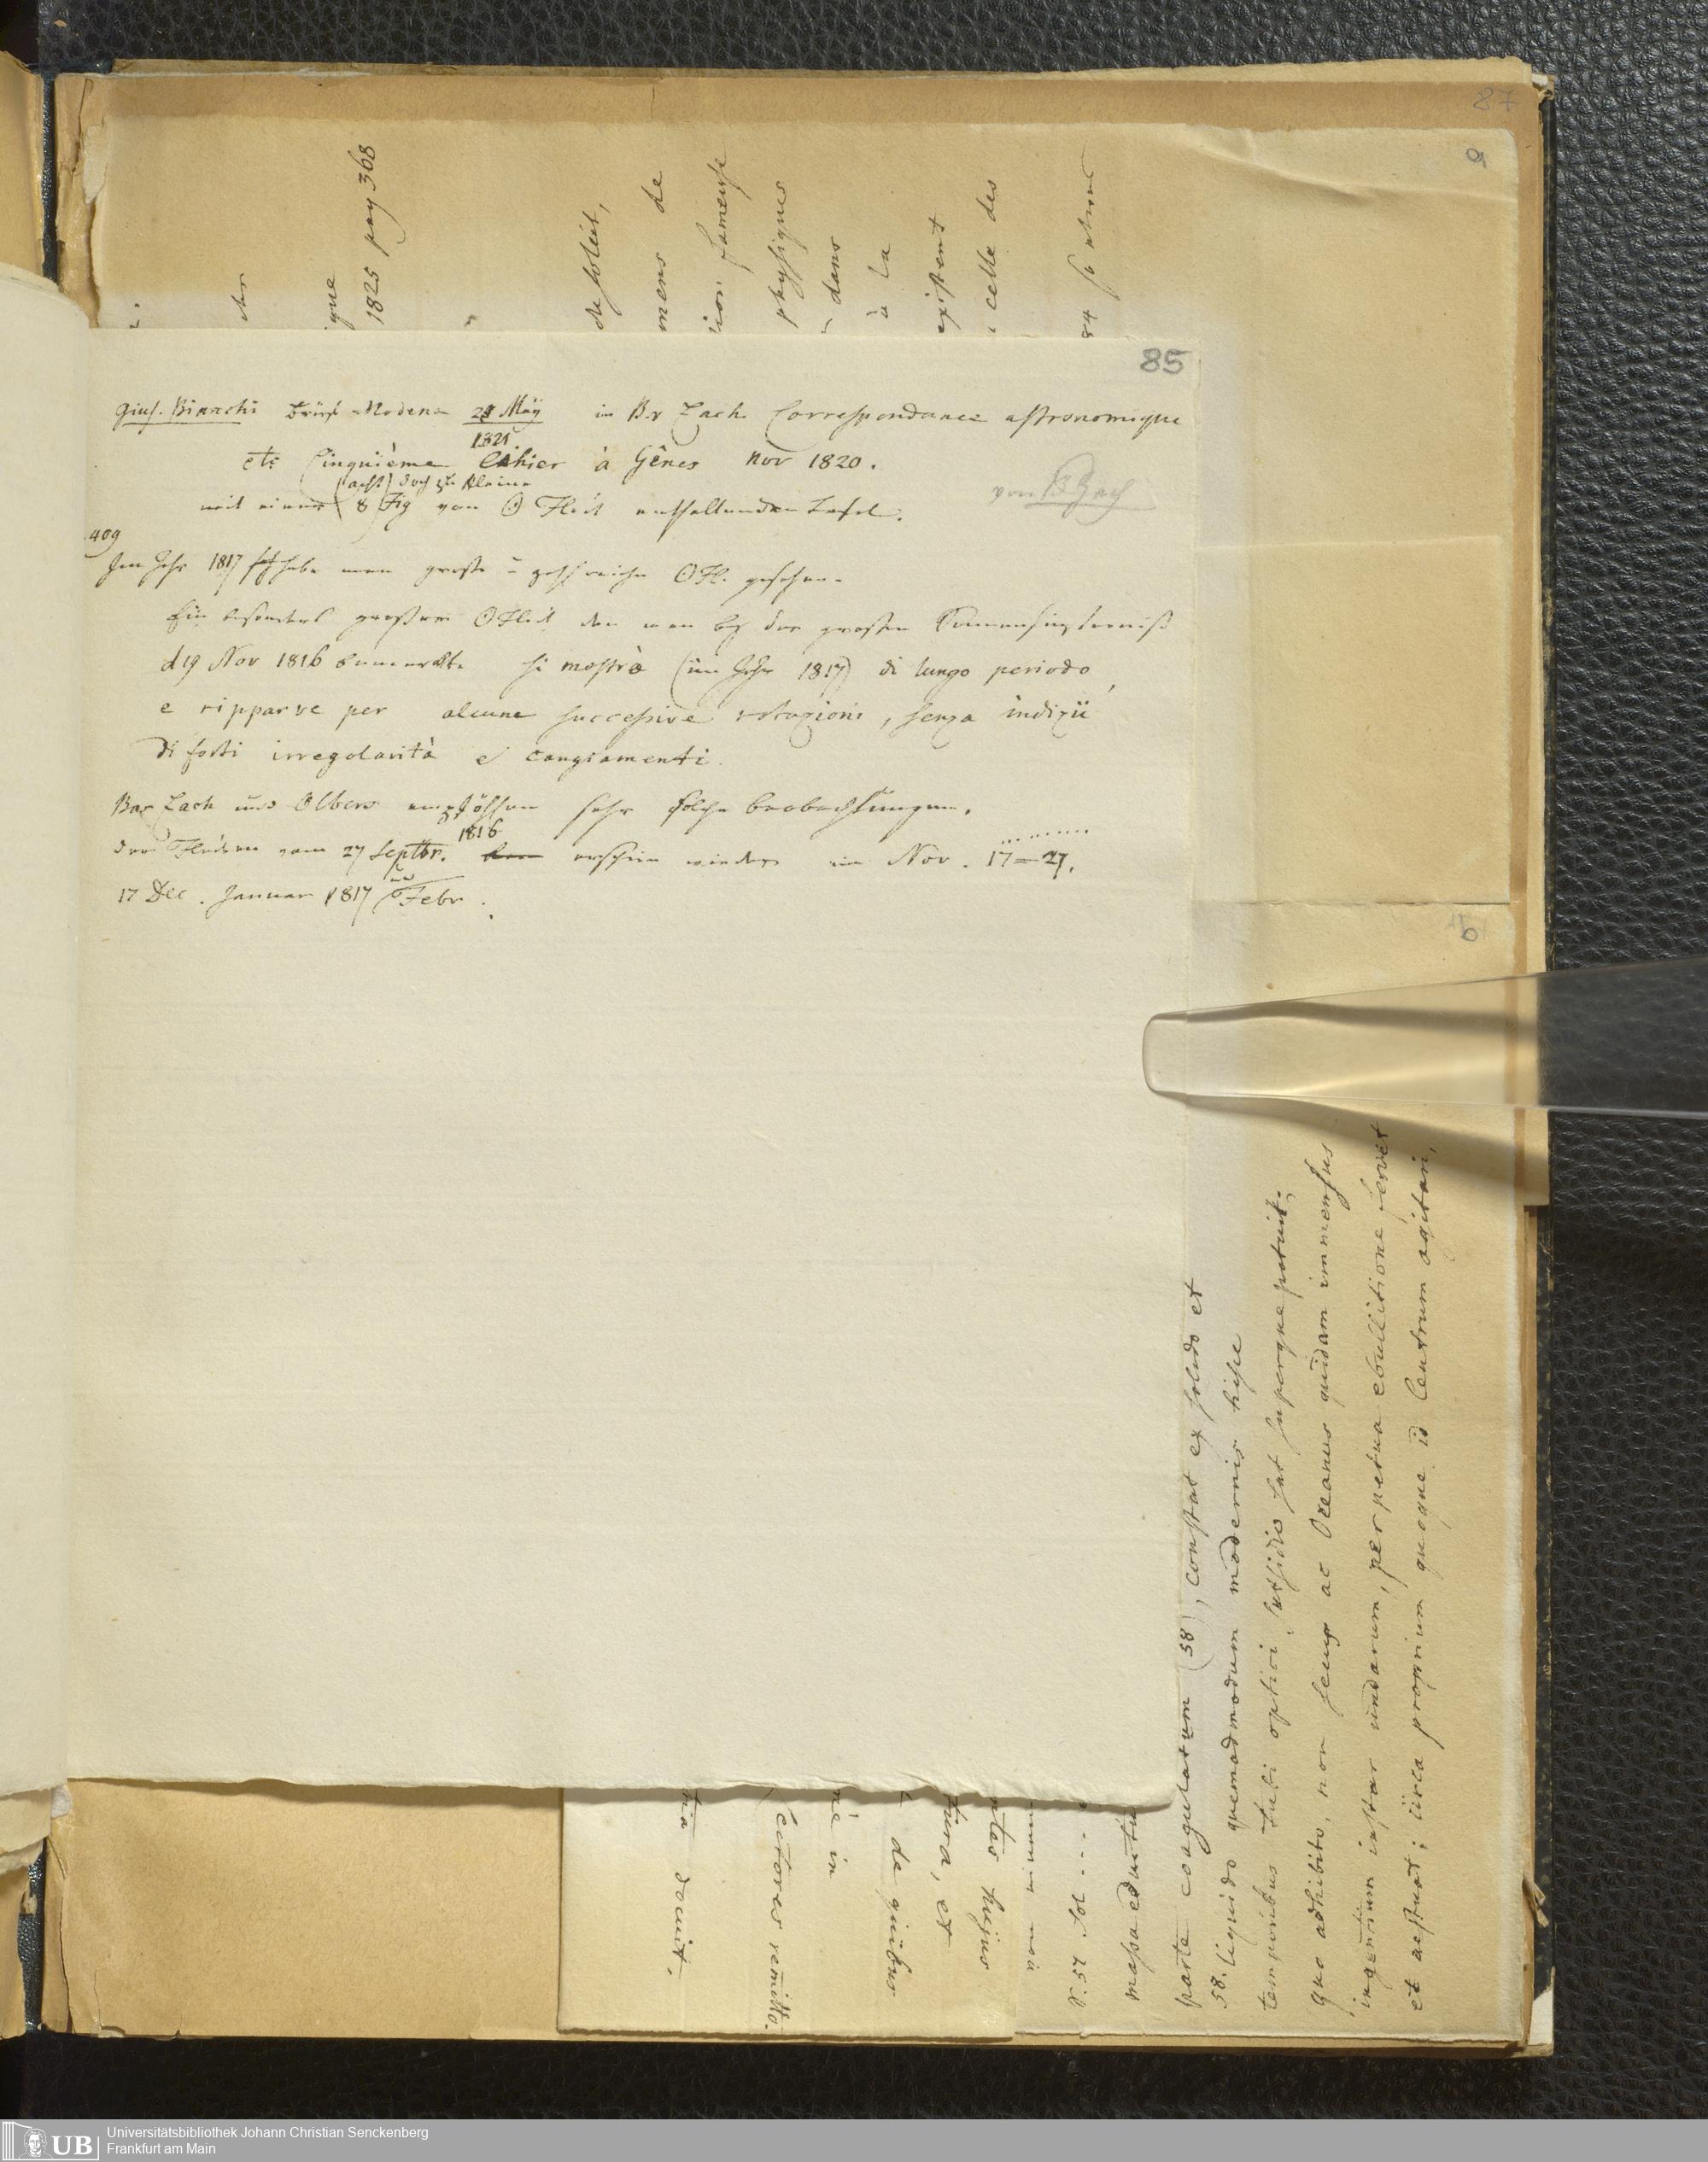 87
a
85
Gius. Bianchi Brief Modena 21 May in Br Zach Correspondance astronomique
1821
etc Cinquième Cahier à Gênes Nov 1820.
(acht) doch zu kleine
mit einer 8 Fig von ☉ Fleck enthaltenden Tafel.
von B Zach
409
Im Jahr 1817 habe man große u zahlreiche ☉ Fl. gesehen.
Ein besonders großer ☉ Fleck den man bey der großen Sonnenfinsterniß
d 19 Nov 1816 bemerkte si mostrò (im Jahr 1817) di lungo periodo,
e ripparve per alcune successive rotazioni, senza indizii
di forti irregolarità e cangiamenti.
Bar Zach und Olbers empföhlen sehr solche Beobachtungen.
der Flecken vom 27 Septbr. 1816 erschien wieder im Nov. 17=27.
17 Dec. Januar 1817 und Febr.
der
que
1825 pag 368
du soleil,
mens de
ion fameuse
physiques
dans
à la
existent
celle des
84
b
parte coagulatum (58), constat ex solido et
58. liquido quemadmodum modernis hisce
temporibus tubi optici subsidio sat superque patuit.
quo adhibito, non secus ac Oceanus quidam immensus
ingentium instar undarum, perpetua ebullitione fervet
et aestuat; circa proprium quoque id Centrum agitari,
docuit.
Lectores remitto.
in
de quibus
tura, et
hujus
§. 57. Sol ....
massa
Universitätsbibliothek Johann Christian Senckenberg
Frankfurt am Main
UB